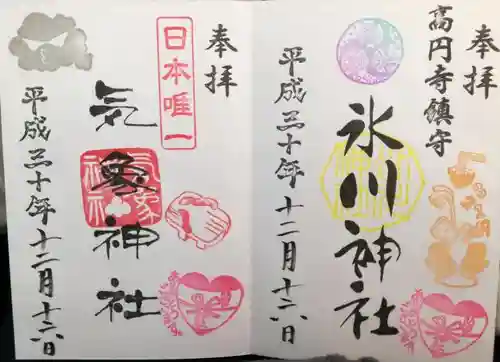 高円寺鎮守
奉拝
氷川神社
平成三十年十二月十六日
奉拝
日本唯一
気象神社
平成三十年十二月十六日